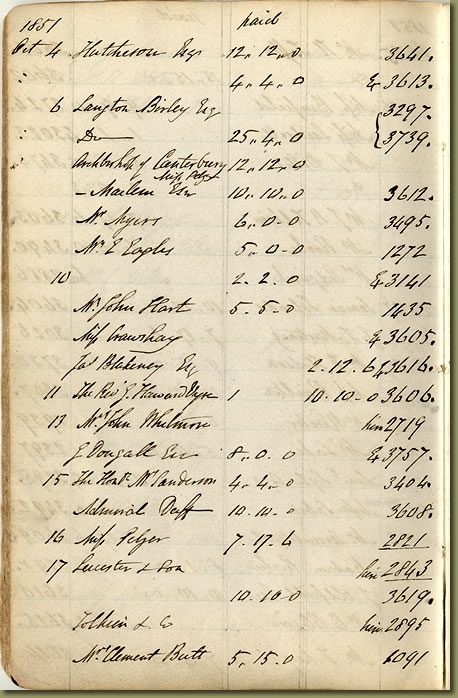 1851 paid
Oct 4 Hutcheson Esq 12,, 12,, 0 3641.
4,, 4,, 0 & 3613.
6 Langton Birley Esq 3297.
Do 25,, 4,, 0 3739.
Archbishop of Canterbury 12,, 12,, 0
Miss Pelzer
– Esq 10,, 10,, 0 3612.
Mr Myers 6,, 0 - 0 3495.
Mr E Eagles 5,, 0 - 0 1272
10 2 - 2. 0 & 3141
Mr John Hart 5 - 5 - 0 1435
Miss Crawshay & 3605.
Jas Blakeney Esq 2. 12. 6 & 3616.
11 The Revd J. Howard Vyse 1 10. 10 - 0 3606.
13 Mr John Whitmore hire 2719
J. Dougall Esq 8,, 0. 0 & 3757.
15 The Honble Mrs Sanderson 4,, 4. 0 3404.
Admiral Duff 10. 10. 0 3608.
16 Miss Pelzer 7. 17. 6 2821
17 Leicester & Son hire 2843
10. 10. 0 3619.
& Co hire 2895
Mrs Clement Butt 5. 15. 0 1091